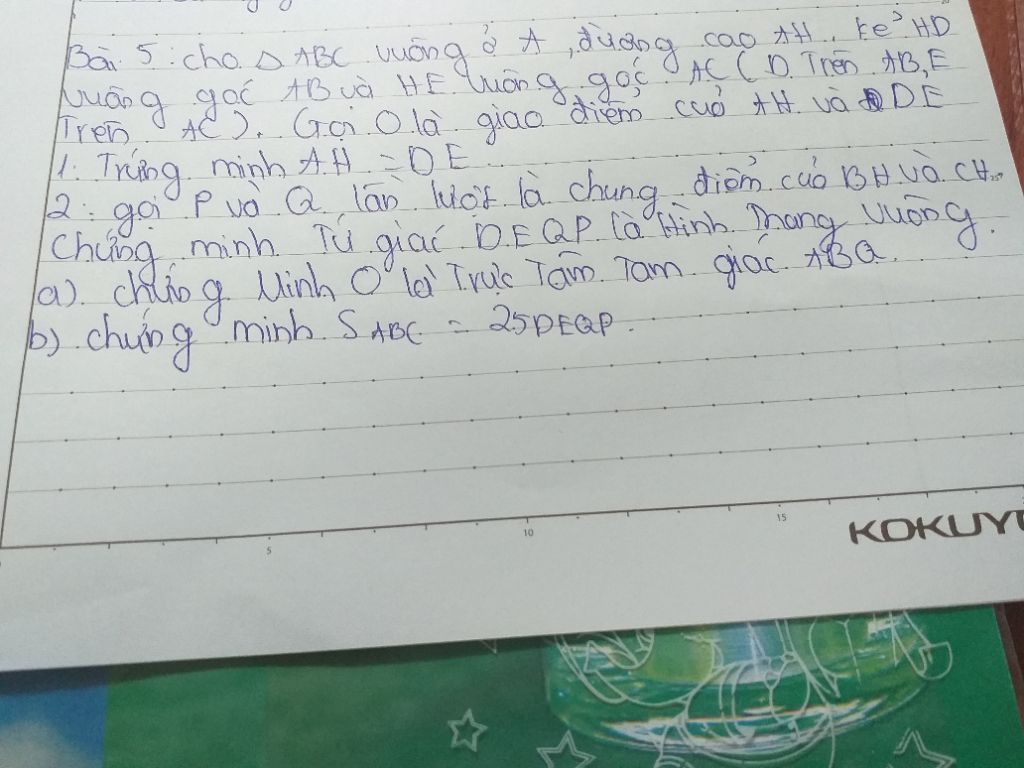 Bài 5: cho △ ABC vuông ở A, đường cao AH. kẻ HD
vuông góc AB và HE vuông góc AC (D Trên AB, E
Trên AC). Gọi O là giao điểm của AH và DE
1. Trứng minh AH = DE
2: gọi P và Q lần lượt là chung điểm của BH và CH.
Chứng minh Tứ giác DEQP là Hình Thang vuông.
a). chứng Minh O là Trực Tâm Tam giác ABQ.
b) chứng minh S ABC = 2SDEQP.
5
10
15
KOKUY